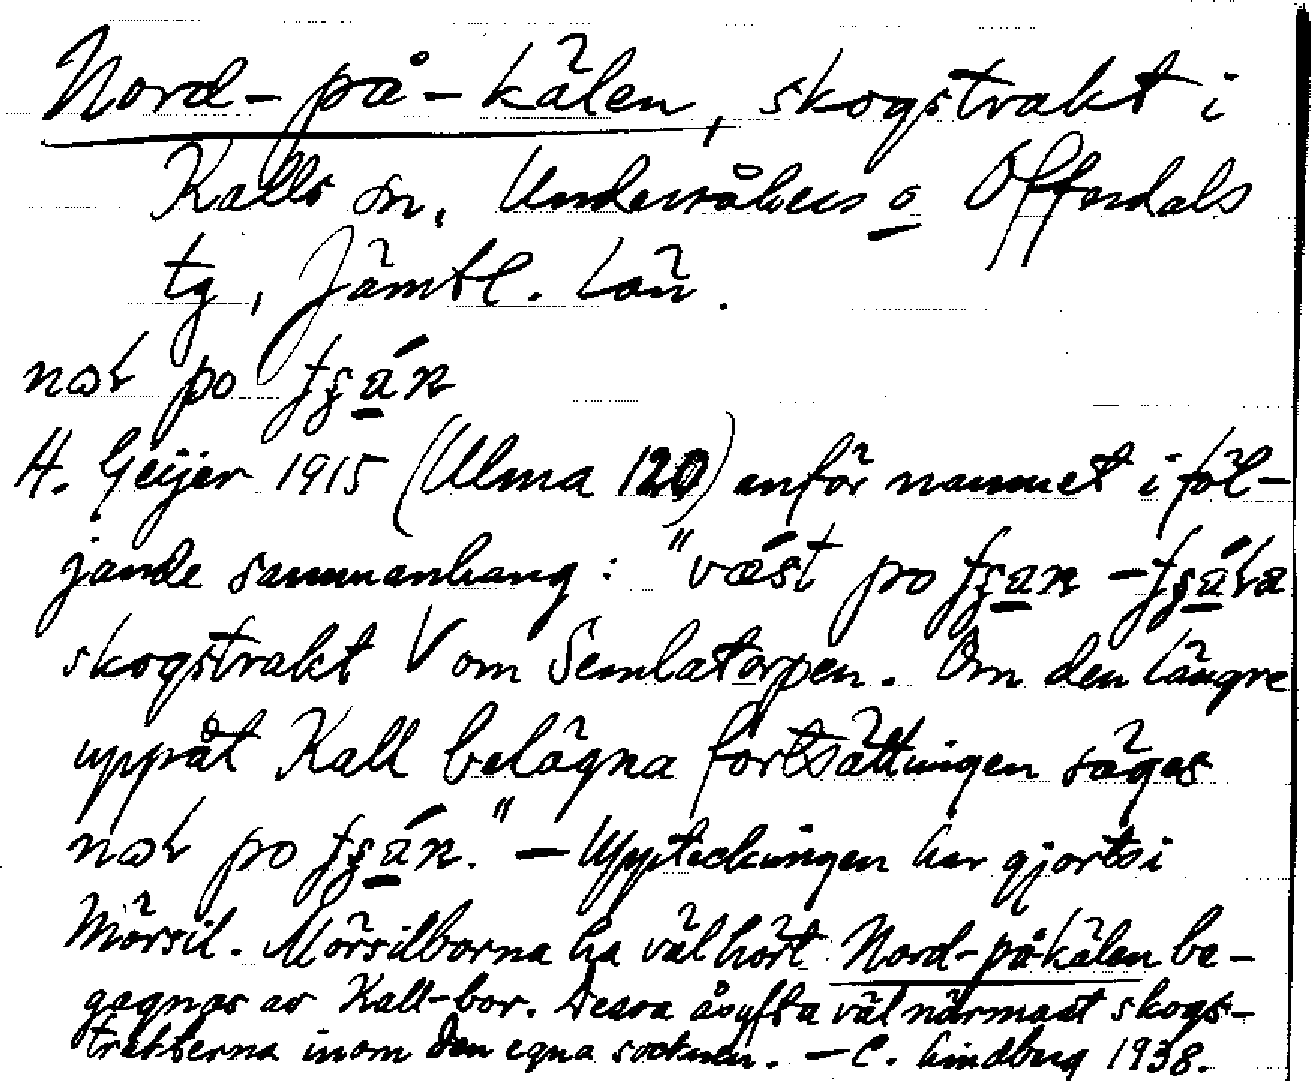 Nord-på-kälen, skogstrakt i
Kalls sn, Undersåkers o Offerdals
tg, Jämtl. län.
noʟ po
H. Geijer 1915 (Ulma 120) anför namnet i föl-
jande sammanhang: "væst po
skogstrakt V om Semlatorpen. Om den längre
uppåt Kall belägna fortsättningen säges
noʟ po " – Uppteckningen har gjorts i
Mörsil. Mörsilborna ha väl hört Nord-på-kälen be-
gagnas av Kall-bor. Dessa åsyfta väl närmast skogs-
trakterna inom den egna socknen. – C. Lindberg 1938.